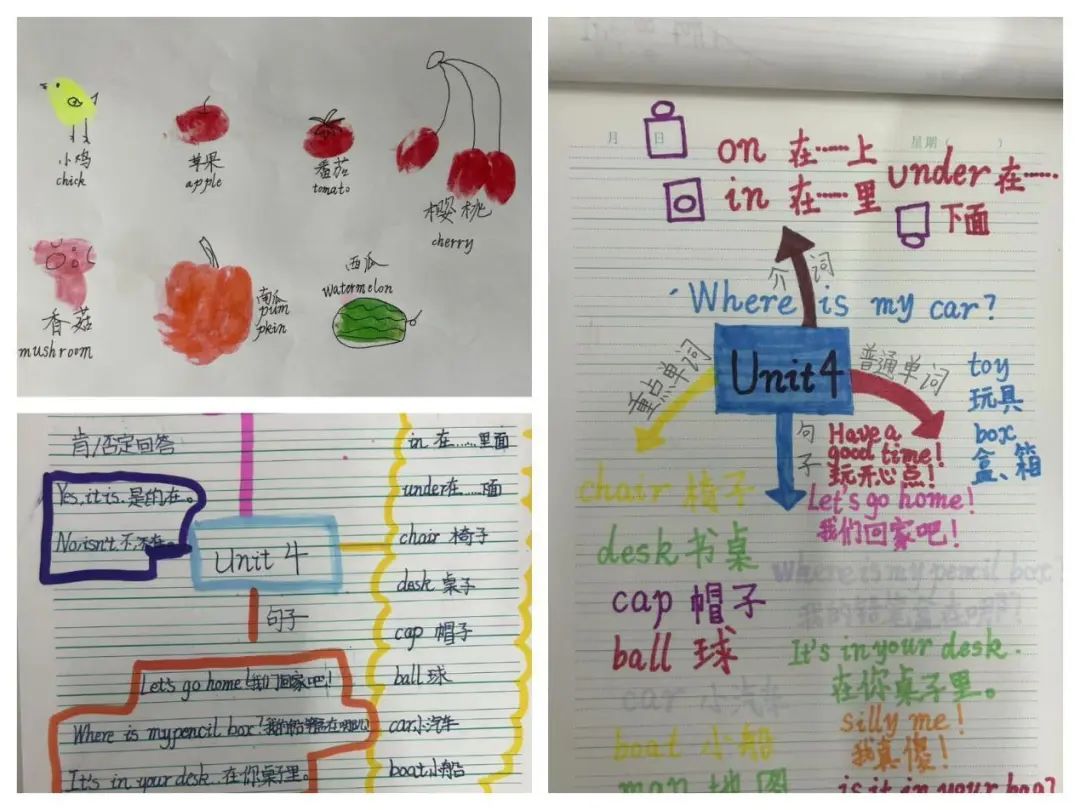 小鸡
chick
苹果
apple
番茄
tomato
樱桃
cherry
香菇
mushroom
南瓜
pum
pkin
西瓜
watermelon
肯/否定回答
Yes, it is. 是的在。
No, isn't 不
Unit 4
句子
Let's go home! 我们回家吧!
Where is my pencil box? 我的铅笔
It's in your desk. 在你桌子里。
in 在……里面
under 在……下面
chair 椅子
desk 桌子
cap 帽子
ball 球
car 小汽车
boat 小船
月 日
星期( )
on 在……上
in 在……里
under 在……
下面
介词
Where is my car?
Unit 4
重点单词
普通单词
句子
toy
玩具
box
盒、箱
Have a
good time!
玩开心点!
Let's go home!
我们回家吧!
chair 椅子
desk 书桌
cap 帽子
ball 球
car 小汽车
boat 小船
map 地图
Where is my pencil box?
我的铅笔盒在哪?
It's in your desk.
在你桌子里。
silly me!
我真傻!
is it in your bag?